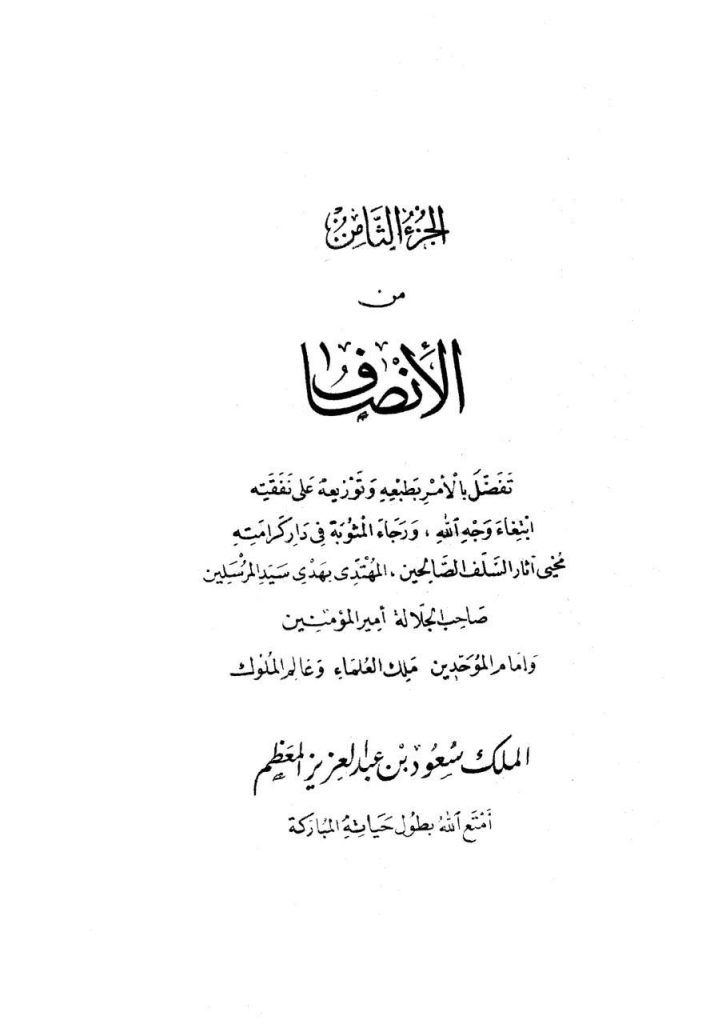 الجُزْءُ الثَّامِنُ
من
الأنْصَاف
تَفَضَّلَ بالأمْرِ بَطبْعِهِ وَتَوْزيعهِ عَلى نَفَقَتِه
ابْتِغاءَ وَجْهِ اللهِ ، وَرَجَاءَ المَثُوبَة فِى دَارِ كَرامَتِهِ
مُحْيى آثار السَّلَف الصَّالِحين ، المُهْتَدِى بهَدْىِ سَيّدِ المرْسَلِين
صَاحِب الجَلالة أمِير المؤمنِين
وَامَام المُوَحّدِين مَلِك العُلماءِ وَعَالِم المُلوك
الملك سُعُود بْن عَبد العَزيز المعَظَّم
أمْتَع اللهُ بطُول حَيَاتِهِ المُبَارَكَة